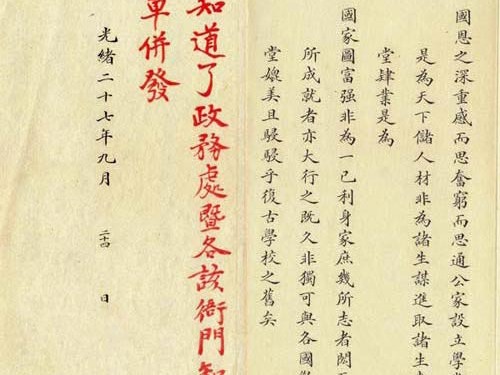 國恩之深重感而思奮窮而思通公家設立學
是為天下儲人材非為諸生謀進取諸生
堂肄業是為
國家圖富强非為一己利身家庶幾所志者閎
所成就者亦大行之既久非獨可與各國
堂媲美且駸駸乎復古學校之舊矣
知道了政務處暨各該衙門知
單併發
光緒二十七年九月 二十四 日